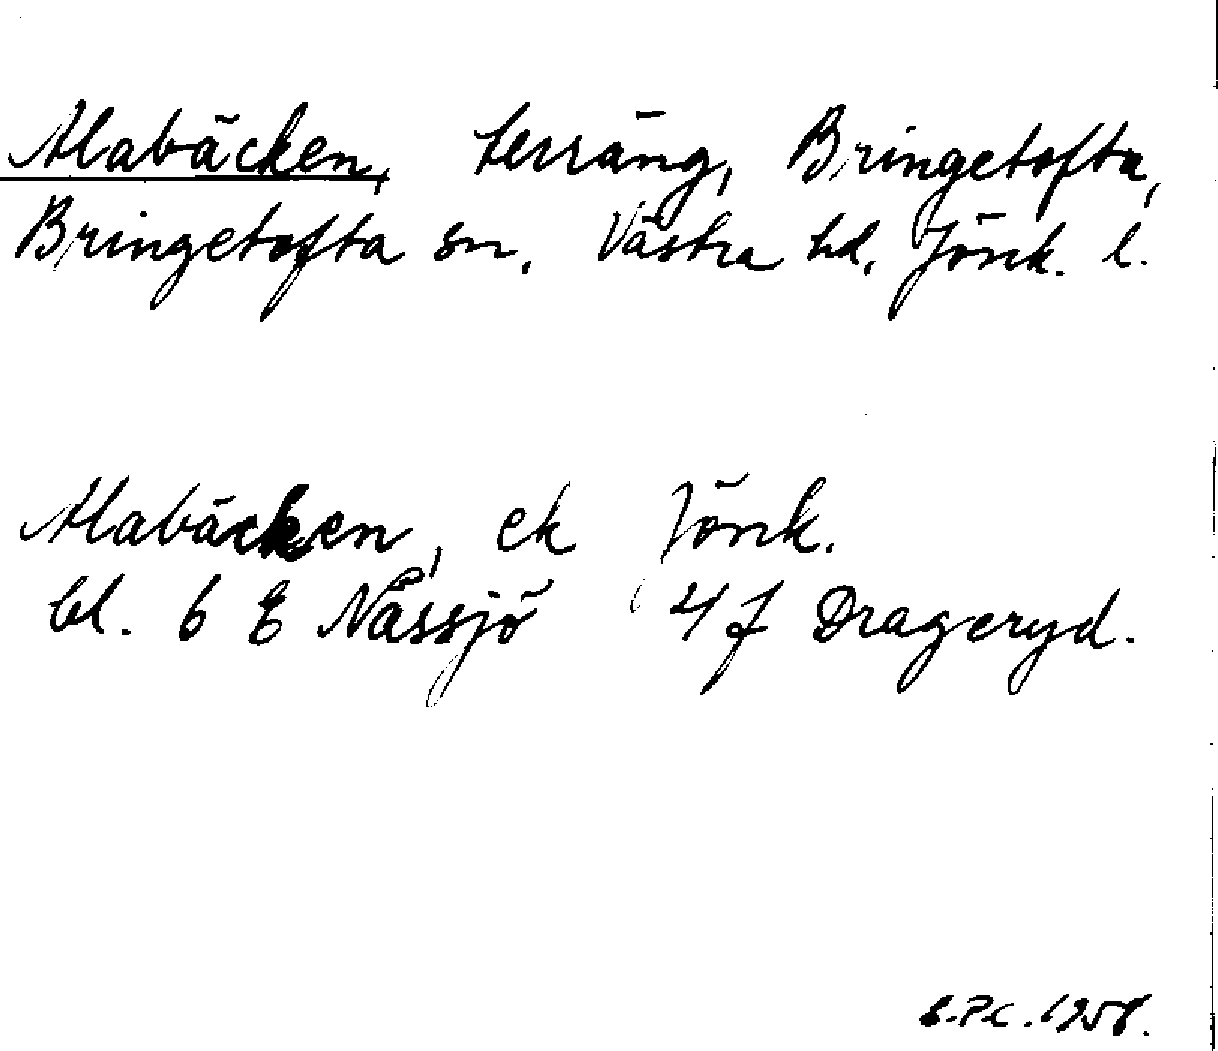 Alabäcken, terräng, Bringetofta,
Bringetofta sn. Västra hd, Jönk. l.
Alabäcken, ek Jönk.
bl. 6 E Nässjö 4f Drageryd.
E.P.C. 1958.